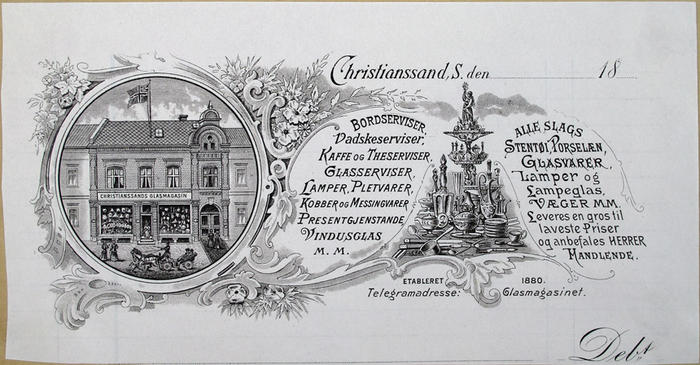 Christianssand, S. den 18
CHRISTIANSSANDS GLASMAGASIN
BORDSERVISER,
Vadskeserviser,
KAFFE OG THESERVISER,
GLASSERVISER,
LAMPER, PLETVARER,
KOBBER OG MESSINGVARER
PRESENTGJENSTANDE
VINDUSGLAS
M. M.
ALLE SLAGS
STENTØI, PORSELÆN,
GLASVARER,
Lamper og
Lampeglas,
VÆGER MM.
Leveres en gros til
laveste Priser
og anbefales HERRER
HANDLENDE.
ETABLERET 1880.
Telegramadresse: Glasmagasinet.
Debt